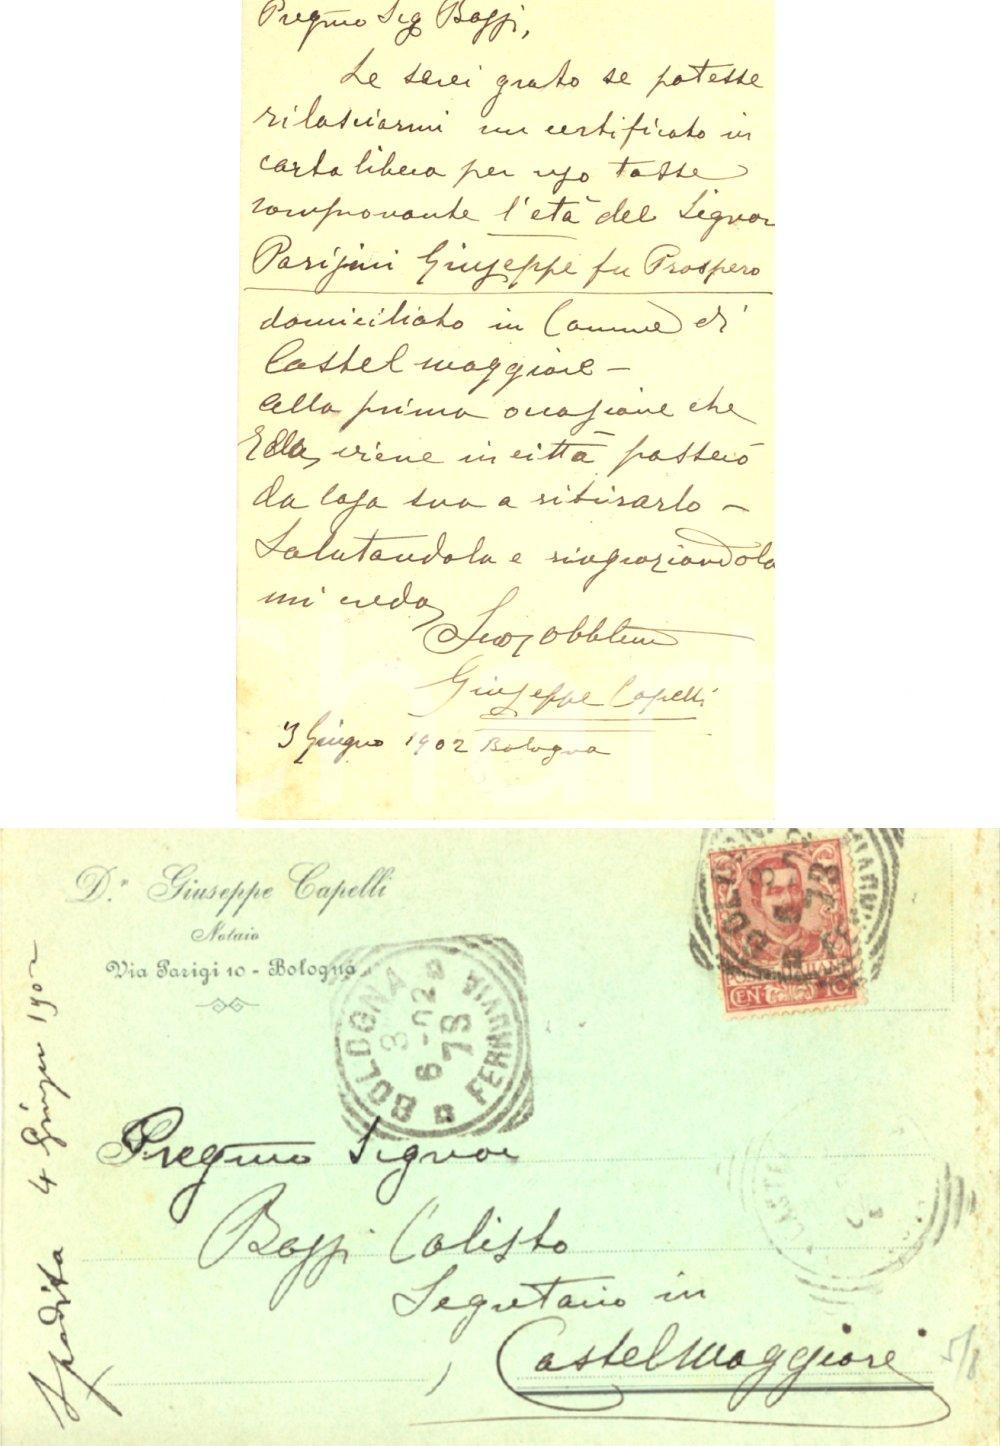 Pregmo Sig Bassi,
Le sarei grato se potesse
rilasciarmi un certificato in
carta libera per uso tasse
comprovante l'età del Signor
Parisini Giuseppe fu Prospero
domiciliato in Comune di
Castel maggiore –
Alla prima occasione che
Ella, viene in città passerò
da casa sua a ritirarlo –
Salutandola e ringraziandola
mi creda
Suo obblmo
Giuseppe Capelli
3 Giugno 1902 Bologna
D.r Giuseppe Capelli
Notaio
Via Parigi 10 - Bologna
BOLOGNA
3
6-02
7S
FERROVIA
CENT 10
Pregmo Signor
Bassi Calisto
Segretario in
Castelmaggiore
Spedita 4 Giugno 1902
5/8